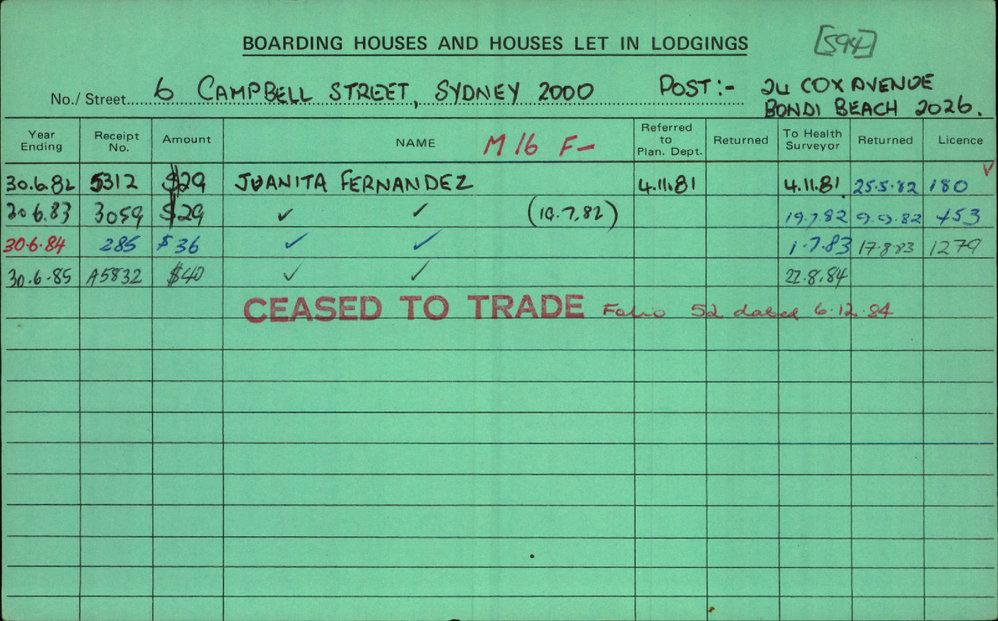 BOARDING HOUSES AND HOUSES LET IN LODGINGS [594]
No./ Street 6 CAMPBELL STREET, SYDNEY 2000 POST:- 24 COX AVENUE
BONDI BEACH 2026.
Year Ending Receipt No. Amount NAME M 16 F- Referred to Plan. Dept. Returned To Health Surveyor Returned Licence
30.6.82 5312 $29 JUANITA FERNANDEZ 4.11.81 4.11.81 25.5.82 180 ✓
30.6.83 3059 $29 ✓ ✓ (19.7.82) 19.7.82 9.9.82 453
30.6.84 285 $36 ✓ ✓ 1.7.83 17.8.83 1279
30.6.85 A5832 $40 ✓ ✓ 22.8.84
CEASED TO TRADE Folio 52 dated 6.12.84